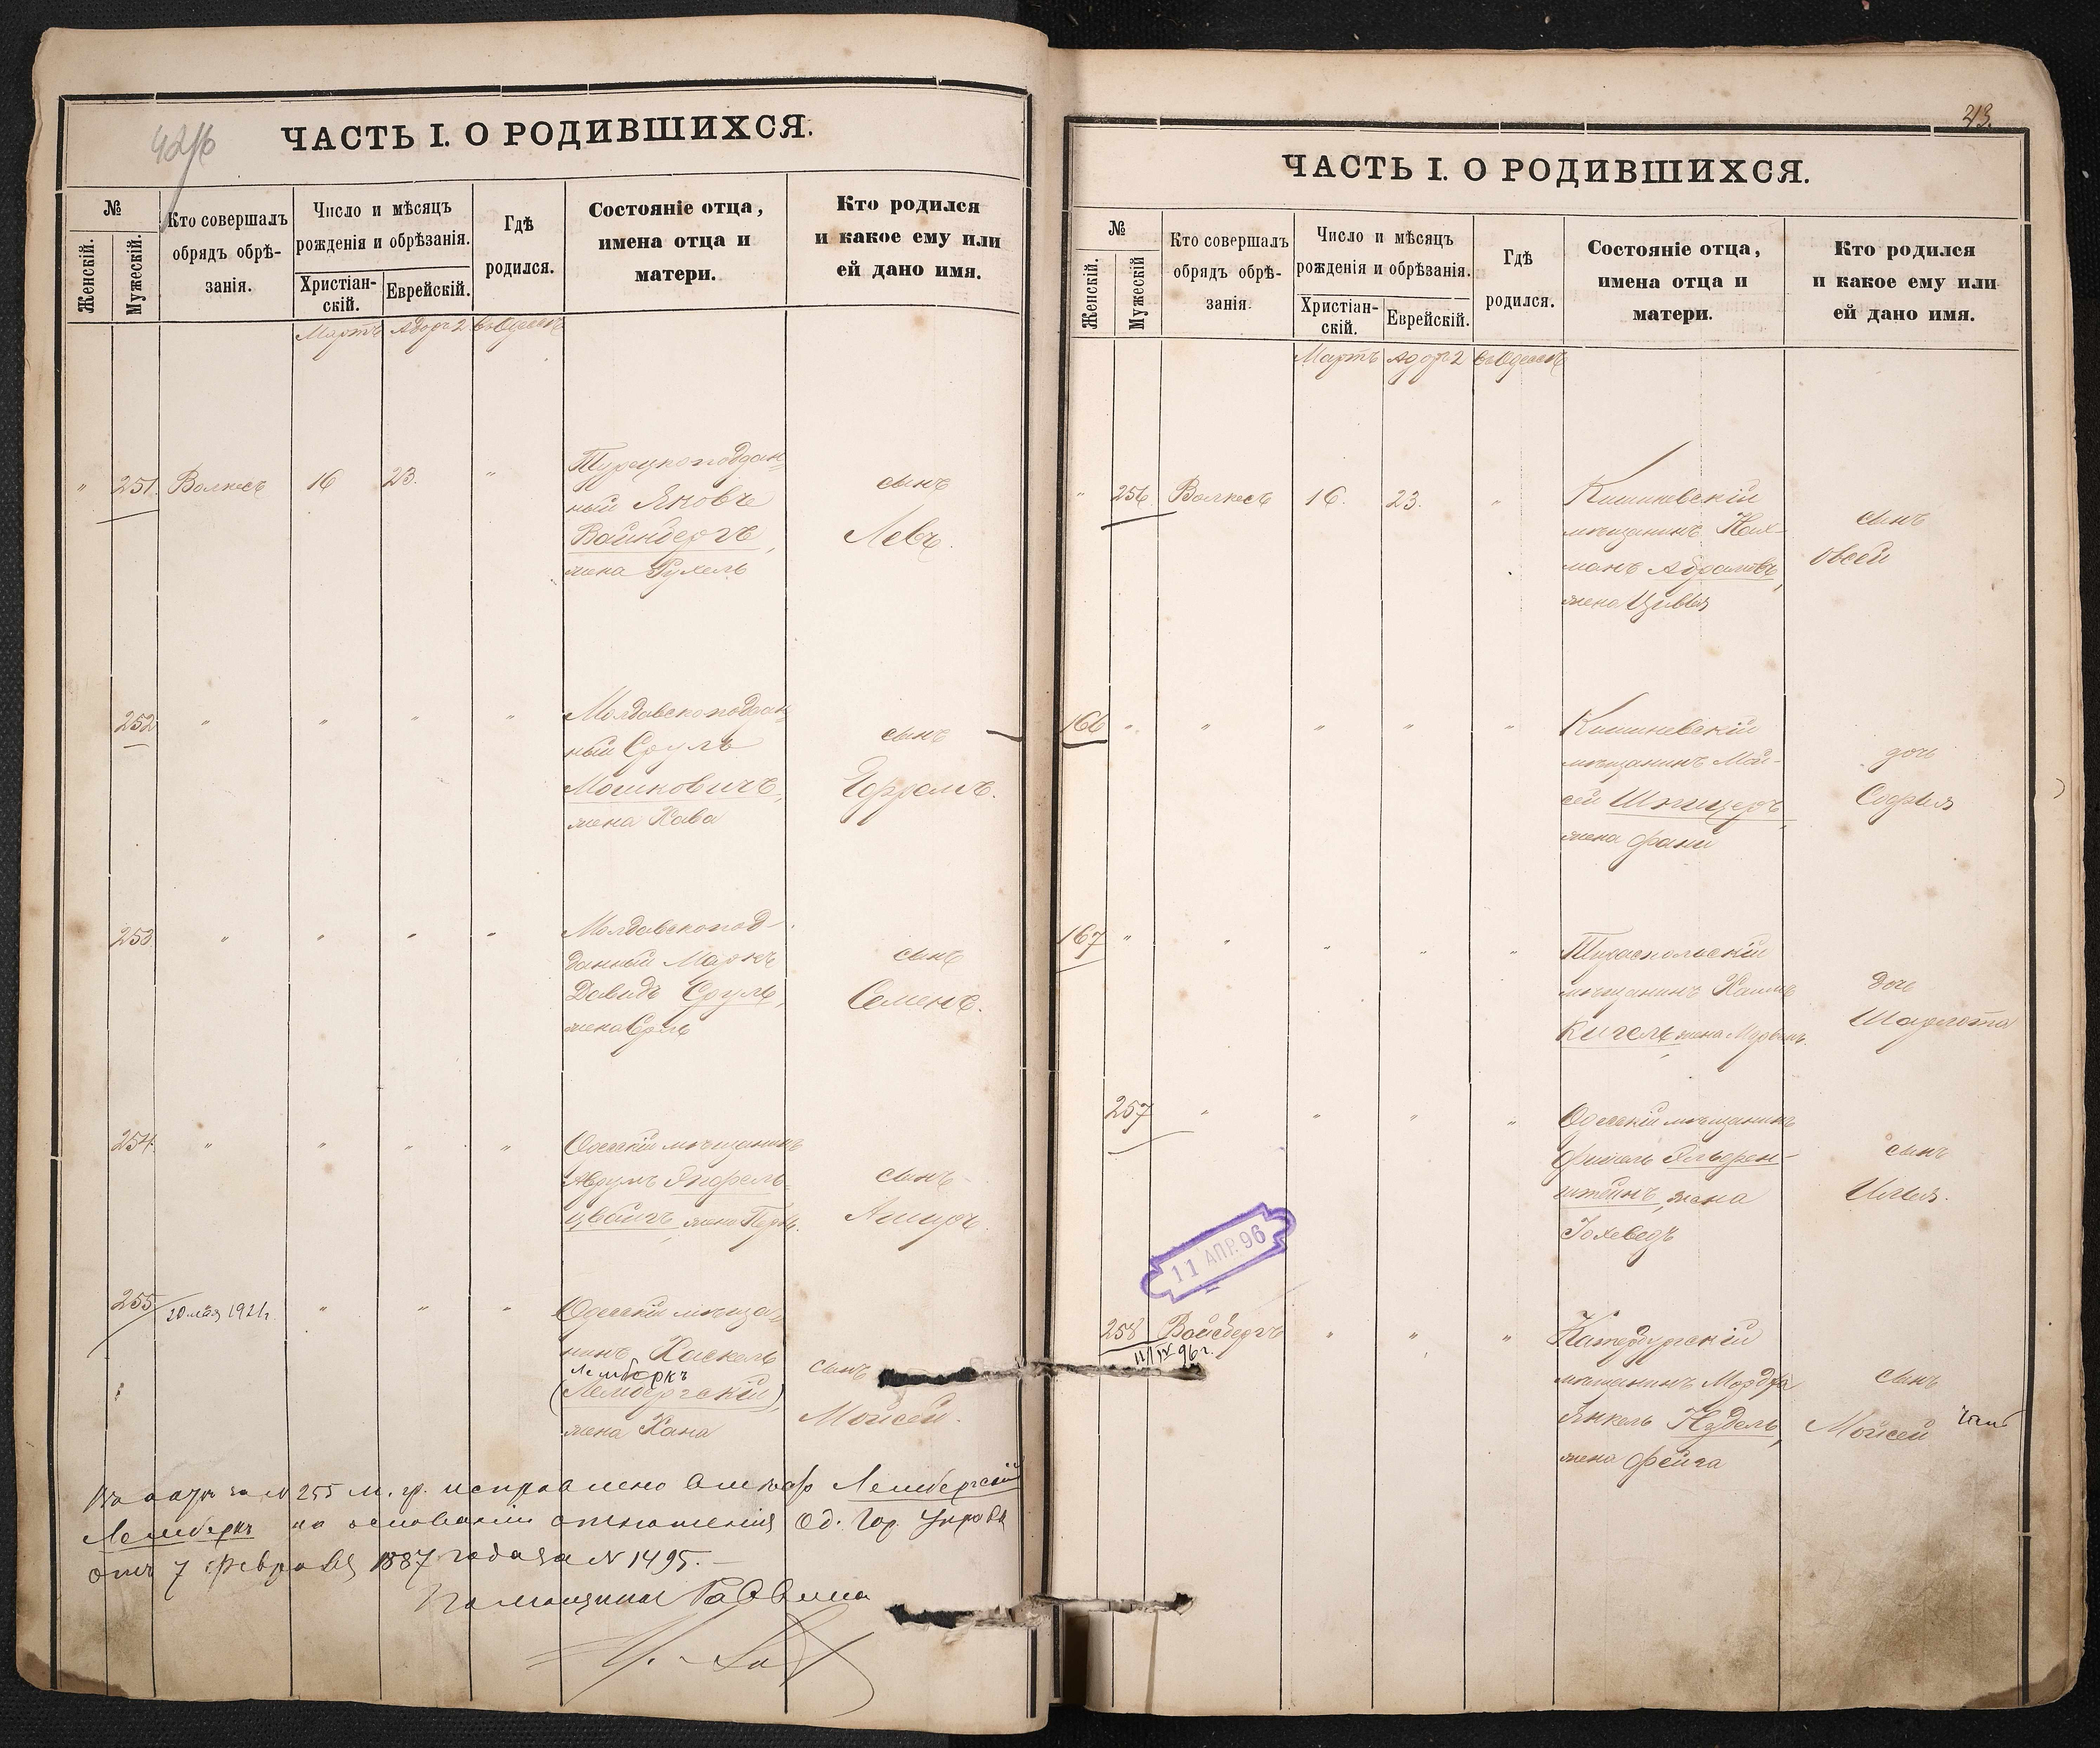 ЧАСТЬ I. О РОДИВШИХСЯ.
№
Женскій.
Мужескій.
Кто совершалъ
обрядъ обрѣ-
занія.
Число и мѣсяцъ
рожденія и обрѣзанія.
Христіан-
скій.
Еврейскій.
Гдѣ
родился.
Состояніе отца,
имена отца и
матери.
Кто родился
и какое ему или
ей дано имя.
Мартъ Адоръ 2 въ Одессѣ
" 251. Волкесъ 16 23. "
Турецкоподдан-
ный Яковъ
Вайнбергъ,
жена Рухель
сынъ
Левъ.
252 " " " "
Молдавскоподдан-
ный Сруль
Мошковичъ,
жена Хава
сынъ
253 " " " "
Молдавскопод-
данный Маркъ
Давидъ Сруль,
жена
сынъ
Семенъ.
254. " " " "
Одесскій мѣщанинъ
цвайгъ, жена
сынъ
255 20 мая 1921г. " " "
Одесскій мѣща-
нинъ Хаскель
Лемберкъ
(Лембергскій)
жена Хана
сынъ
Мойсей.
№ 255 м. гр. исправлено Лембергскій
Лемберкъ на основаніи отношенія Од. Гор. Управы
отъ 7 февраля 1887 года за № 1495.
Помощникъ Раввина
43.
ЧАСТЬ I. О РОДИВШИХСЯ.
№
Женскій.
Мужескій
Кто совершалъ
обрядъ обрѣ-
занія.
Число и мѣсяцъ
рожденія и обрѣзанія.
Христіан-
скій.
Еврейскій.
Гдѣ
родился.
Состояніе отца,
имена отца и
матери.
Кто родился
и какое ему или
ей дано имя.
Мартъ Адоръ 2 въ Одессѣ
" 256. Волкесъ 16. 23. "
Кишиневскій
мѣщанинъ Нах-
манъ Абрамовъ,
жена Цивья
сынъ
Овсей
166 " " " " "
Кишиневскій
мѣщанинъ Мой-
сей Шпицеръ,
жена Фани
дочь
Софья
167 " " " " "
Тираспольскій
мѣщанинъ Хаимъ
Кигель жена
дочь
Шарлота
257 " " " "
Одесскій мѣщанинъ
Фишель Гельфен-
штейнъ, жена
Іохеведъ
сынъ
Илья.
11 АПР. 96
258 Вайсбергъ " " "
11/IV 96 г.
мѣщанинъ Мордха
Янкель Нудель,
жена Фейга
сынъ
Мойсей